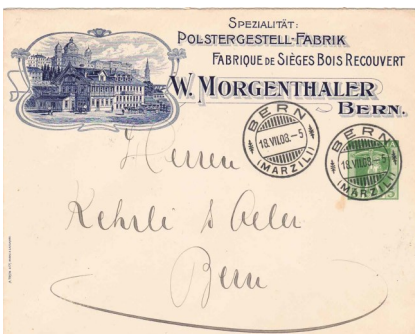 SPEZIALITÄT:
POLSTERGESTELL-FABRIK
FABRIQUE DE SIÈGES BOIS RECOUVERT
W. MORGENTHALER
BERN.
BERN
18.VII.08.–5
(MARZILI)
BERN
18.VII.08.–5
(MARZILI)
5
Herren
Kehrli & Oeler
Bern